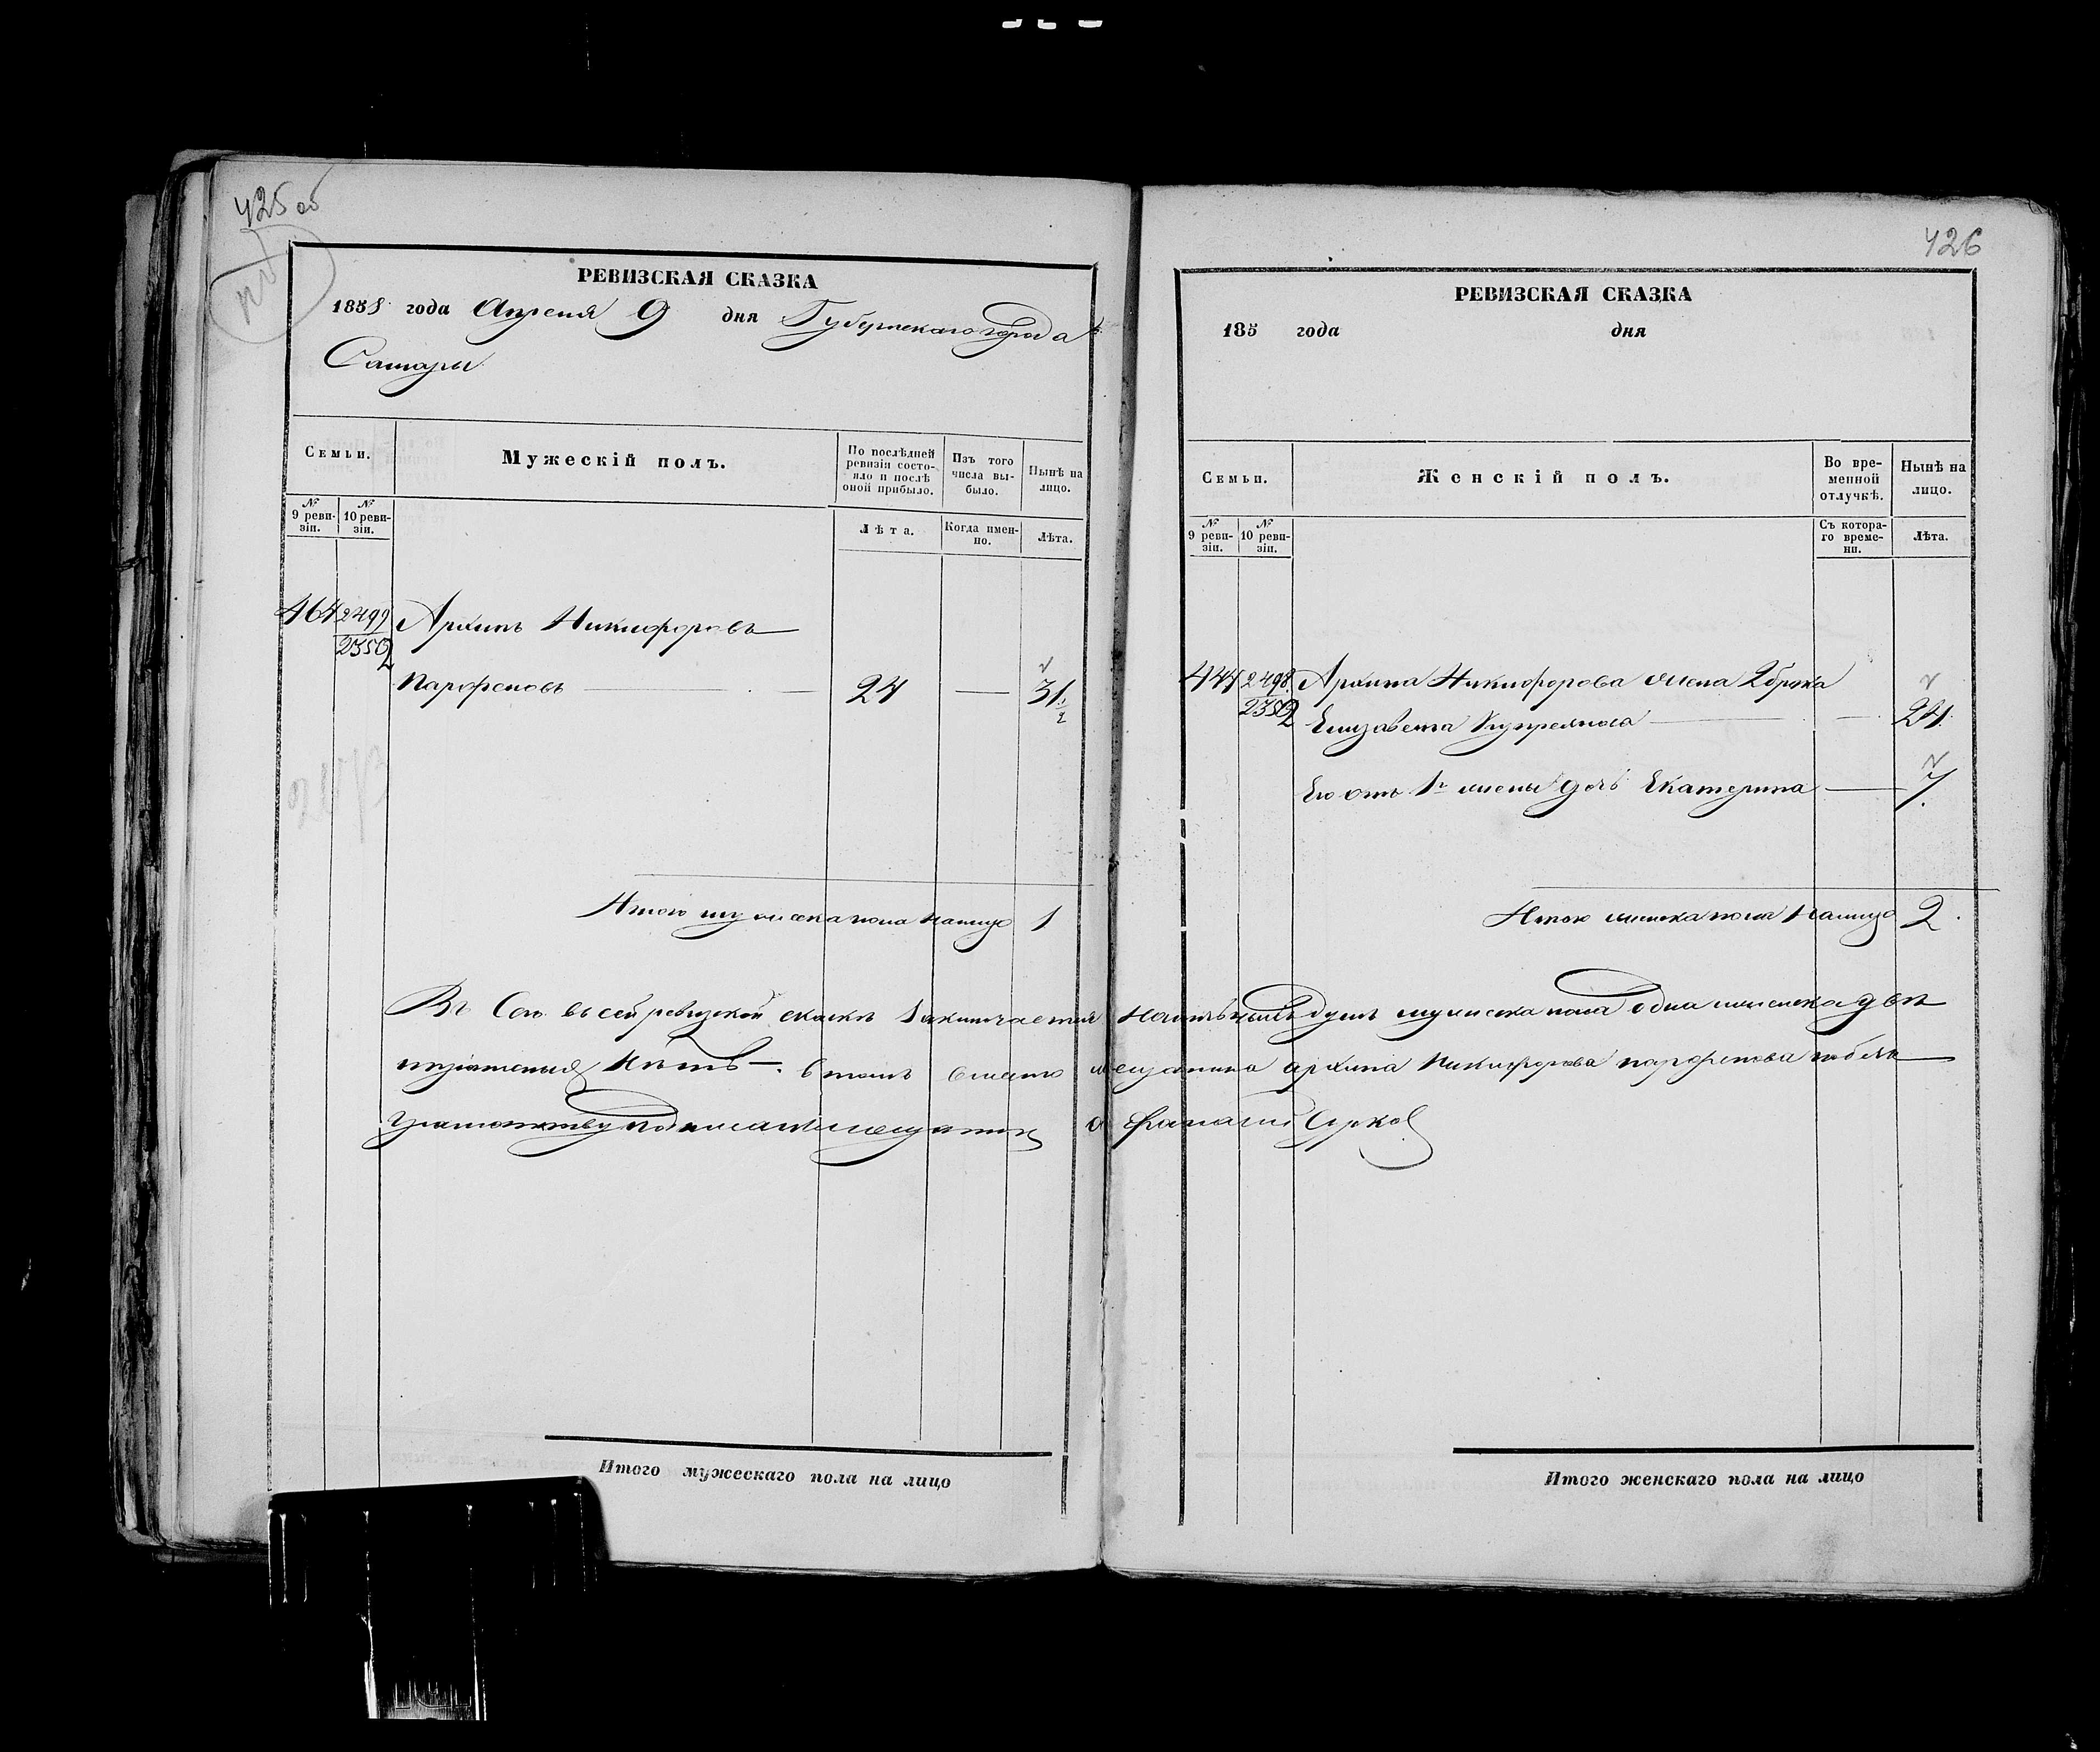 425 об
РЕВИЗСКАЯ СКАЗКА
1858 года Апреля 9 дня Губернскаго города
Самары
Семьи.
Мужескій полъ.
По послѣдней ревизіи состояло и послѣ оной прибыло.
Изъ того числа выбыло.
Нынѣ на лицо.
№ 9 ревизіи.
№ 10 ревизіи.
Лѣта.
Когда именно.
Лѣта.
464 2499 Архипъ Никифоровъ
2350
Парфеновъ 24 31
Итого мужеска пола налицо 1
426
РЕВИЗСКАЯ СКАЗКА
185 года дня
Семьи.
Женскій полъ.
Во временной отлучкѣ.
Нынѣ на лицо.
№ 9 ревизіи.
№ 10 ревизіи.
Съ котораго времени.
Лѣта.
2498 Архипа Никифорова жена 2 брака
Елизавета 24
Его отъ 1й жены дочь Екатерина 7
Итого женска пола налицо 2
Въ сей ревизской сказкѣ заключается наличныхъ душъ мужеска пола одна женска двѣ
нѣтъ. вместо мещанина архипа никифорова парфенова
мещанин
Итого мужескаго пола на лицо
Итого женскаго пола на лицо